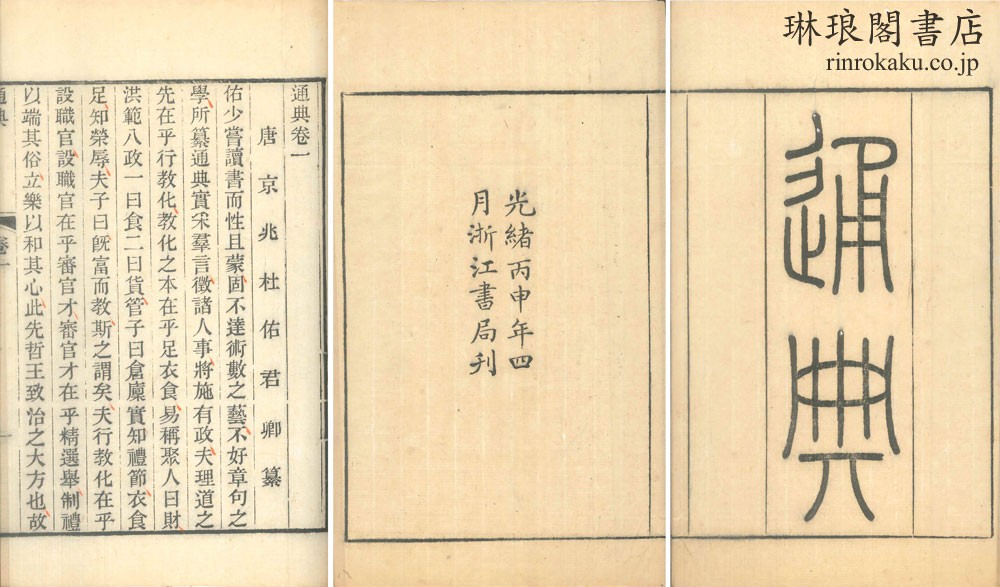 琳琅閣書店
rinrokaku.co.jp
通典
光緒丙申年四
月浙江書局刊
通典卷一
唐京兆杜佑君卿纂
佑少嘗讀書而性且蒙固不達術數之藝不好章句之
學所纂通典實采羣言徵諸人事將施有政夫理道之
先在乎行教化教化之本在乎足衣食易稱聚人曰財
洪範八政一曰食二曰貨管子曰倉廩實知禮節衣食
足知榮辱夫子曰既富而教斯之謂矣夫行教化在乎
設職官設職官在乎審官才審官才在乎精選舉制禮
以端其俗立樂以和其心此先哲王致治之大方也故
通典
卷一